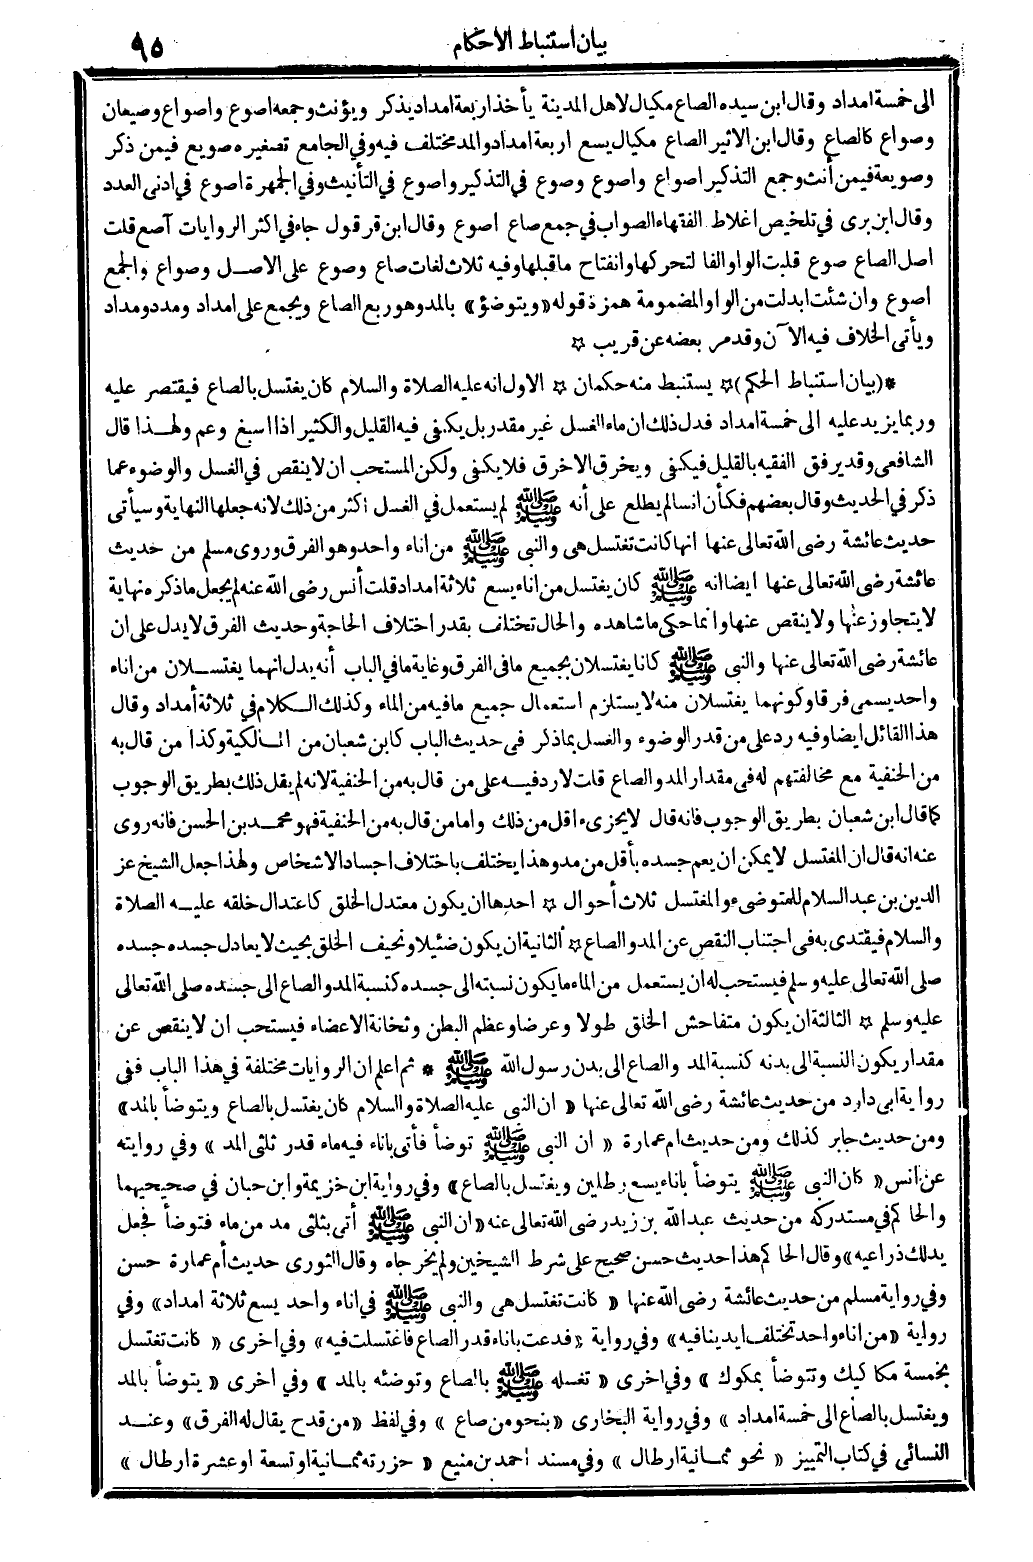 بيان استنباط الأحكام
٩٥
الى خمسة امداد وقال ابن سيده الصاع مكيال لاهل المدينة يأخذ اربعة امداد يذكر ويؤنث وجمعه اصوع واصواع وصيعان
وصواع كالصاع وقال ابن الاثير الصاع مكيال يسع اربعة امداد والمد مختلف فيه وفي الجامع تصغيره صويع فيمن ذكر
وصويعة فيمن أنث وجمع التذكير اصواع واصوع وصوع في التذكير واصوع في التأنيث وفي الجمهرة اصوع في ادنى العدد
وقال ابن برى في تلخيص اغلاط الفقهاء الصواب في جمع صاع اصوع وقال ابن قرقول جاء في اكثر الروايات آصع قلت
اصل الصاع صوع قلبت الواو الفا لتحركها وانفتاح ما قبلها وفيه ثلاث لغات صاع وصوع على الاصل وصواع والجمع
اصوع وان شئت ابدلت من الواو المضمومة همزة قوله «ويتوضؤ» بالمد وهو ربع الصاع ويجمع على امداد ومدد ومداد
ويأتى الخلاف فيه الآن وقد مر بعضه عن قريب ✩
*(بيان استنباط الحكم)✩ يستنبط منه حكمان ✩ الاول انه عليه الصلاة والسلام كان يغتسل بالصاع فيقتصر عليه
وربما يزيد عليه الى خمسة امداد فدل ذلك ان ماء الغسل غير مقدر بل يكفى فيه القليل والكثير اذا اسبغ وعم ولهذا قال
الشافعى وقد يرفق الفقيه بالقليل فيكفى ويخرق الاخرق فلا يكفى ولكن المستحب ان لا ينقص في الغسل والوضوء عما
ذكر في الحديث وقال بعضهم فكأن انسا لم يطلع على أنه ﷺ لم يستعمل في الغسل اكثر من ذلك لانه جعلها النهاية وسيأتى
حديث عائشة رضى الله تعالى عنها انها كانت تغتسل هى والنبى ﷺ من اناء واحد وهو الفرق وروى مسلم من حديث
عائشة رضى الله تعالى عنها ايضا انه ﷺ كان يغتسل من اناء يسع ثلاثة امداد قلت أنس رضى الله عنه لم يجعل ما ذكره نهاية
لا يتجاوز عنها ولا ينقص عنها وانما حكى ما شاهده والحال تختلف بقدر اختلاف الحاجة وحديث الفرق لا يدل على ان
عائشة رضى الله تعالى عنها والنبى ﷺ كانا يغتسلان بجميع ما فى الفرق وغاية ما في الباب أنه يدل انهما يغتسلان من اناء
واحد يسمى فرقا وكونهما يغتسلان منه لا يستلزم استعمال جميع ما فيه من الماء وكذلك الكلام في ثلاثة أمداد وقال
هذا القائل ايضا وفيه رد على من قدر الوضوء والغسل بما ذكر فى حديث الباب كابن شعبان من المالكية وكذا من قال به
من الحنفية مع مخالفتهم له فى مقدار المد والصاع قلت لا رد فيه على من قال به من الحنفية لانه لم يقل ذلك بطريق الوجوب
كما قال ابن شعبان بطريق الوجوب فانه قال لا يجزىء اقل من ذلك واما من قال به من الحنفية فهو محمد بن الحسن فانه روى
عنه انه قال ان المغتسل لا يمكن ان يعم جسده بأقل من مد وهذا يختلف باختلاف اجساد الاشخاص ولهذا جعل الشيخ عز
الدين بن عبد السلام للمتوضىء والمغتسل ثلاث أحوال ✩ احدها ان يكون معتدل الخلق كاعتدال خلقه عليه الصلاة
والسلام فيقتدى به فى اجتناب النقص عن المد والصاع ✩ الثانية ان يكون ضئيلا ونحيف الخلق بحيث لا يعادل جسده جسده
صلى الله تعالى عليه وسلم فيستحب له ان يستعمل من الماء ما يكون نسبته الى جسده كنسبة المد والصاع الى جسده صلى الله تعالى
عليه وسلم ✩ الثالثة ان يكون متفاحش الخلق طولا وعرضا وعظم البطن وثخانة الاعضاء فيستحب ان لا ينقص عن
مقدار يكون النسبة الى بدنه كنسبة المد والصاع الى بدن رسول الله ﷺ * ثم اعلم ان الروايات مختلفة في هذا الباب ففى
رواية ابى دارد من حديث عائشة رضى الله تعالى عنها « ان النبى عليه الصلاة والسلام كان يغتسل بالصاع ويتوضأ بالمد»
ومن حديث جابر كذلك ومن حديث ام عمارة « ان النبى ﷺ توضأ فأتى باناء فيه ماء قدر ثلثى المد » وفي روايته
عن انس « كان النبى ﷺ يتوضأ باناء يسع رطلين ويغتسل بالصاع» وفي رواية ابن خزيمة وابن حبان في صحيحيهما
والحاكم في مستدركه من حديث عبد الله بن زيد رضى الله تعالى عنه «ان النبى ﷺ أتى بثلثى مد من ماء فتوضأ فجعل
يدلك ذراعيه» وقال الحاكم هذا حديث حسن صحيح على شرط الشيخين ولم يخرجاه وقال الثورى حديث أم عمارة حسن
وفي رواية مسلم من حديث عائشة رضى الله عنها « كانت تغتسل هى والنبى ﷺ في اناء واحد يسع ثلاثة امداد» وفي
رواية «من اناء واحد تختلف ايدينا فيه» وفي رواية «فدعت باناء قدر الصاع فاغتسلت فيه» وفي اخرى « كانت تغتسل
بخمسة مكاكيك وتتوضأ بمكوك » وفي اخرى « تغسله ﷺ بالصاع وتوضئه بالمد » وفي اخرى « يتوضأ بالمد
ويغتسل بالصاع الى خمسة امداد » وفي رواية البخارى «بنحو من صاع » وفي لفظ «من قدح يقال له الفرق» وعند
النسائى في كتاب التمييز « نحو ثمانية ارطال » وفي مسند احمد بن منيع « حزرته ثمانية او تسعة او عشرة ارطال »